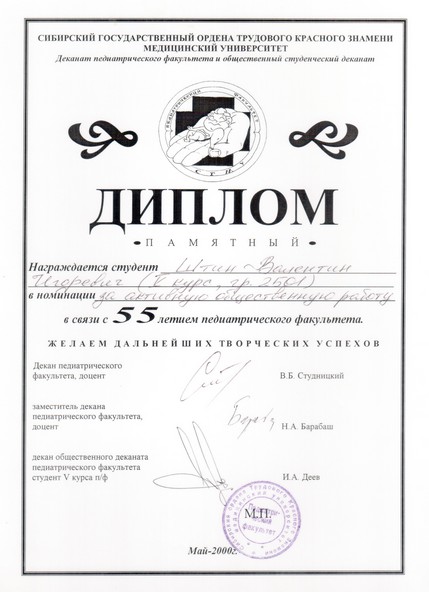 СИБИРСКИЙ ГОСУДАРСТВЕННЫЙ ОРДЕНА ТРУДОВОГО КРАСНОГО ЗНАМЕНИ
МЕДИЦИНСКИЙ УНИВЕРСИТЕТ
Деканат педиатрического факультета и общественный студенческий деканат
ПЕДИАТРИЧЕСКИЙ ФАКУЛЬТЕТ
ДИПЛОМ
• ПАМЯТНЫЙ •
Награждается студент Штин Валентин
Игоревич (V курс, гр. 2501)
в номинации за активную общественную работу
в связи с 55 летием педиатрического факультета.
ЖЕЛАЕМ ДАЛЬНЕЙШИХ ТВОРЧЕСКИХ УСПЕХОВ
Декан педиатрического
факультета, доцент
В.Б. Студницкий
заместитель декана
педиатрического факультета,
доцент
Н.А. Барабаш
декан общественного деканата
педиатрического факультета
студент V курса п/ф
И.А. Деев
М.П.
Май-2000г.